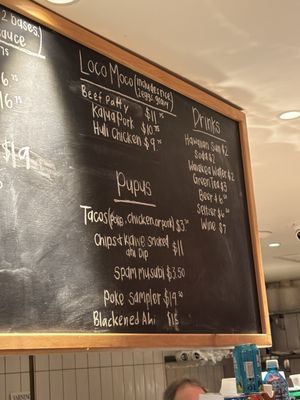 2 bases,
sauce
Loco Moco (includes rice
veggie gravy)
Beef Patty $11
Kalua Pork $10
Huli Chicken $9
Drinks
Hawaiian Sun $2
Soda $2
Water $2
Green Tea $3
Beer $6
Seltzer $6
Wine $7
Pupus
Tacos (poke, chicken, or pork) $3
Chips & smoked $11
ahi Dip
Spam musubi $3.50
Poke Sampler $19
Blackened Ahi $15
$19